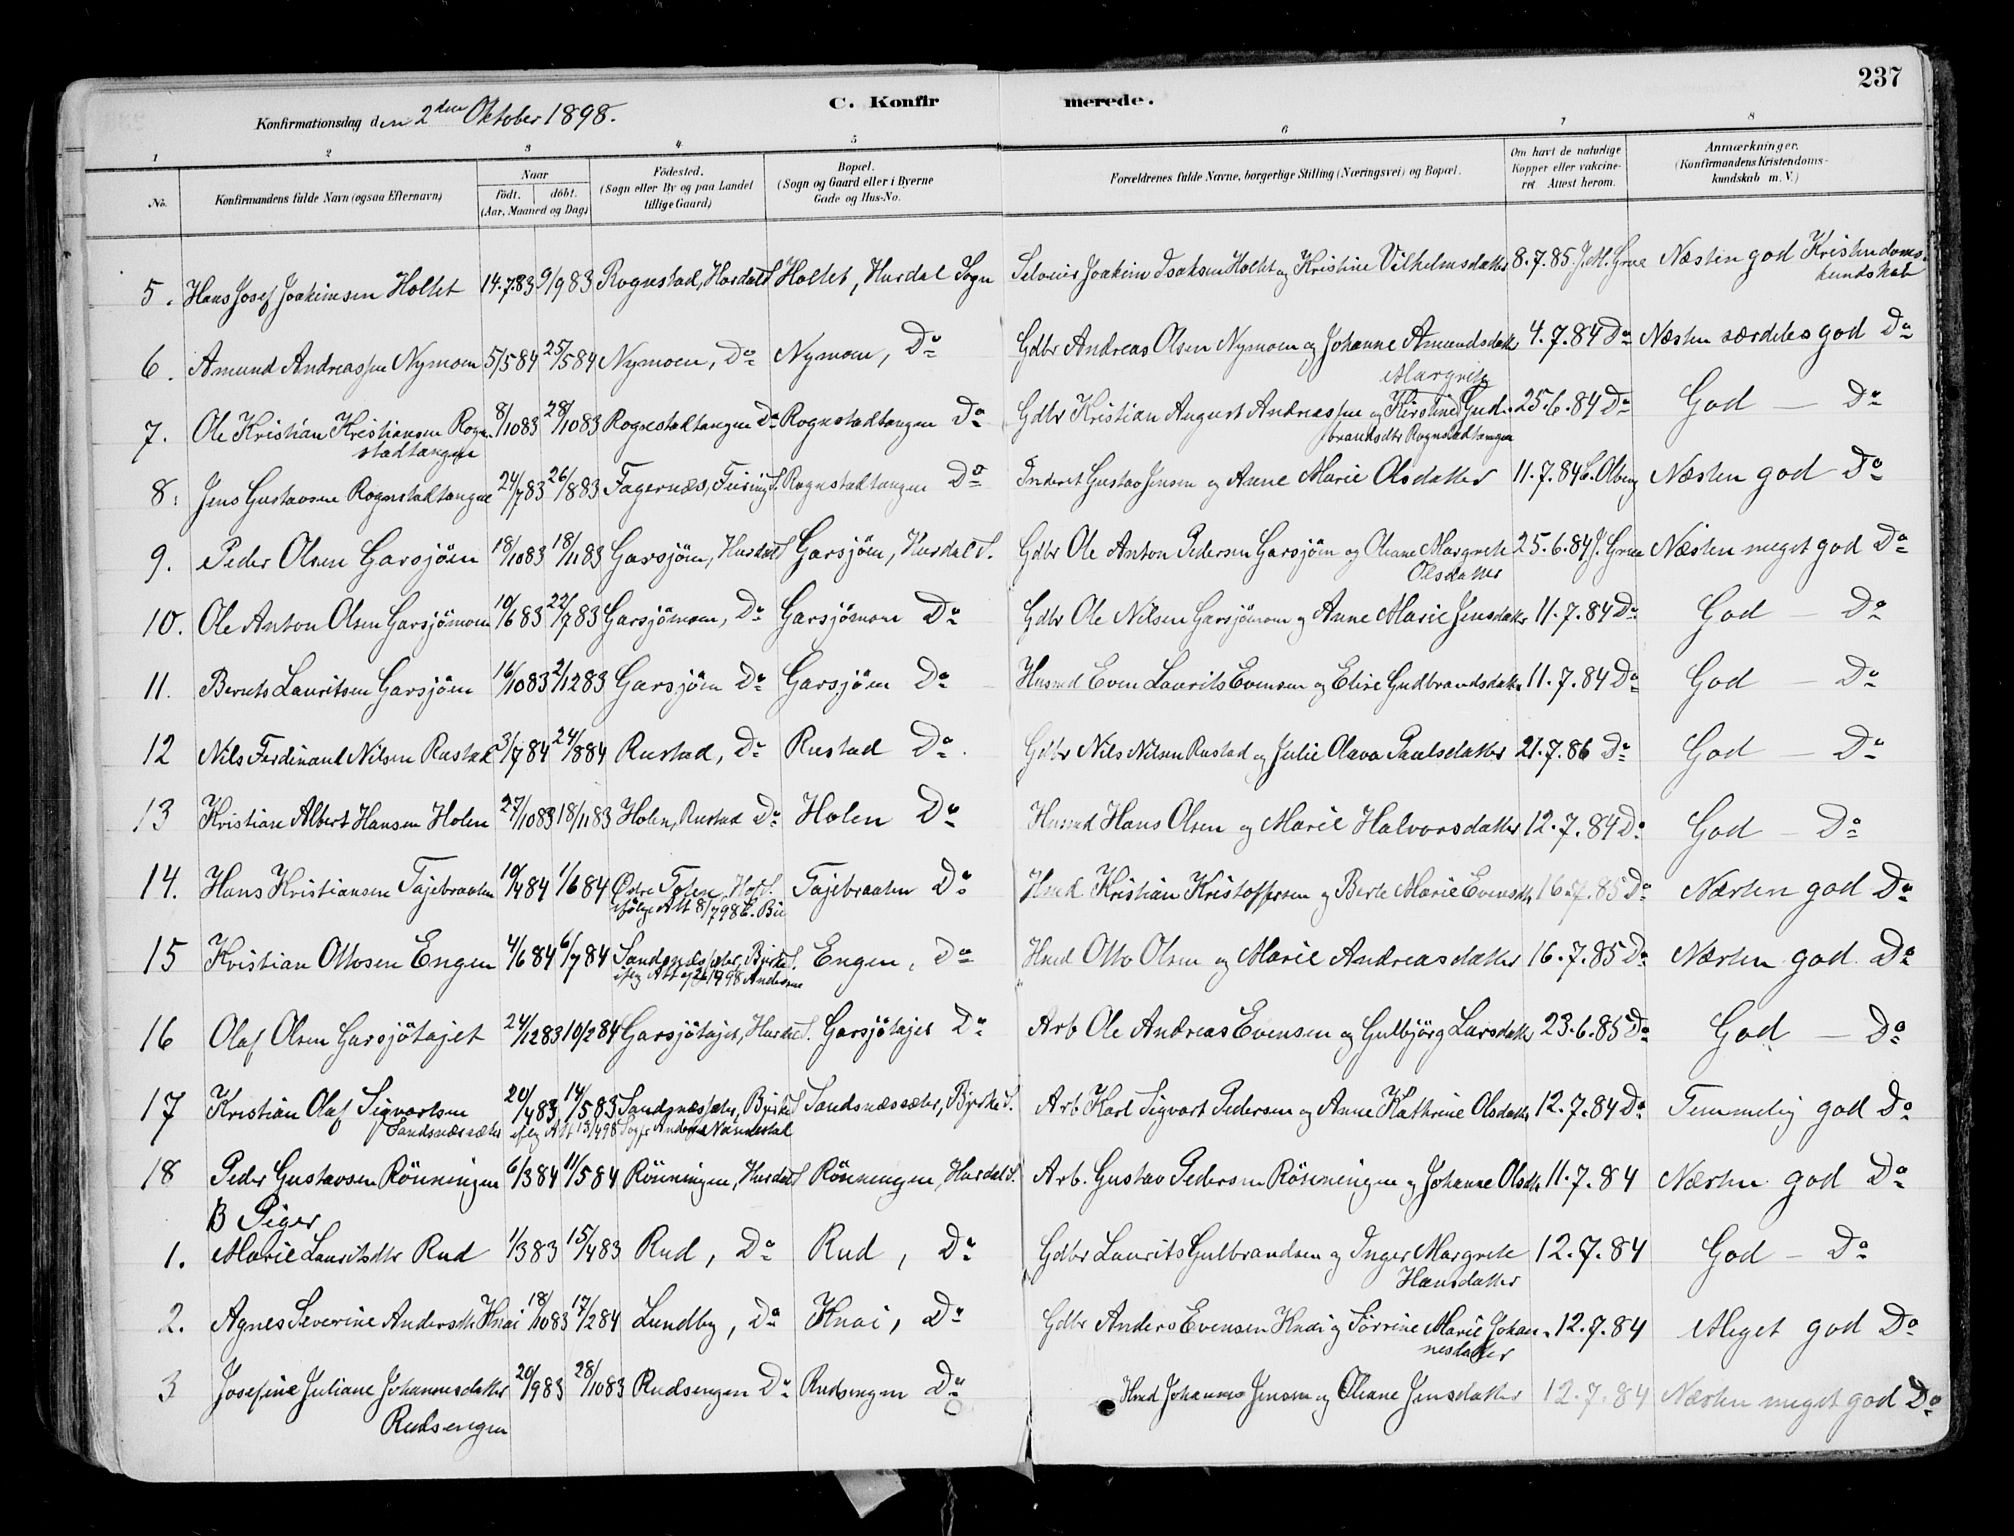 237
C. Konfirmerede.
Konfirmationsdag den 2den Oktober 1898.
1 2 3 4 5 6 7 8
No.
Konfirmandens fulde Navn (ogsaa Efternavn)
Naar
födt. döbt.
(Aar, Maaned og Dag)
Födested.
(Sogn eller By og paa Landet
tillige Gaard)
Bopæl.
(Sogn og Gaard eller i Byerne
Gade og Hus-No.
Forældrenes fulde Navne, borgerlige Stilling (Næringsvei) og Bopæl.
Om havt de naturlige
Kopper eller vakcine-
ret. Attest herom.
Anmærkninger.
(Konfirmandens Kristendoms-
kundskab m. V.)
5. Hans Josef Joakimsen Holtet 14.7.83 9/983 Rognstad, Hurdal S. Holtet, Hurdal Sogn Selveier Joakim Isaksen Holtet og Kristine Vilhelmsdatter 8.7.85 Næsten god Kristendoms-
kundskab
6. Amund Andreassen Nymoen 5/584 25/584 Nymoen, Do Nymoen, Do Gdbr Andreas Olsen Nymoen og Johanne Amundsdatter 4.7.84 Do Næsten særdeles god Do
Margrete
7. Ole Kristian Kristiansen Rogn- 8/1083 28/1083 Rognstadtangen Do Rognstadtangen Do Gdbr Kristian August Andreassen og Kirstine Gud- 25.6.84 Do God — Do
stadtangen brandsdtr Rognstadtangen
8. Jens Gustavsen Rognstadtangen 24/783 26/883 Fagernæs, Feiring S. Rognstadtangen Do Inderst Gustav Jensen og Anne Marie Olsdatter 11.7.84 Næsten god Do
9. Peder Olsen Garsjöen 18/1083 18/1183 Garsjöen, Hurdal S. Garsjöen, Hurdal S. Gdbr Ole Anton Pedersen Garsjöen og Oleane Margrete 25.6.84 Næsten meget god Do
Olsdatter
10. Ole Anton Olsen Garsjömoen 10/683 22/783 Garsjömoen, Do Garsjömoen Do Gdbr Ole Nilsen Garsjömoen og Anne Marie Jensdatter 11.7.84 Do God — Do
11. Bernts Lauritsen Garsjöen 16/1083 2/1283 Garsjöen Do Garsjöen Do Husmd Even Laurits Evensen og Elise Gudbrandsdatter 11.7.84 Do God — Do
12 Nils Ferdinand Nilsen Rustad 3/784 24/884 Rustad, Do Rustad Do. Gdbr Nils Nilsen Rustad og Julie Olava Paulsdatter 21.7.86 Do God — Do
13 Kristian Albert Hansen Holen 27/1083 18/1183 Holen, Rustad Do Holen Do Husmd Hans Olsen og Marie Halvorsdatter 12.7.84 Do God — Do
14. Hans Kristiansen Tajebraaten 10/484 1/684 Østre Toten, Hof S. Tajebraaten Do Hmd Kristian Kristoffersen og Berte Marie Evensdtr 16.7.85 Do Næsten god Do
ifölge Att 8/798 E. Bie
15 Kristian Ottosen Engen 4/684 6/784 Sandsnæsseter, Byrke S. Engen, Do Hmd Otto Olsen og Marie Andreasdatter 16.7.85 Do Næsten god Do
16 Olaf Olsen Garsjötajet 24/1283 10/284 Garsjötajet, Hurdal S. Garsjötajet Do Arb Ole Andreas Evensen og Gulbjörg Larsdatter 23.6.85 Do God — Do
17 Kristian Olaf Sigvartsen 20/483 14/583 Sandsnæsseter, Byrke S. Sandsnæsseter, Byrke S. Arb Karl Sigvart Pedersen og Anne Kathrine Olsdatter 12.7.84 Do Temmelig god Do
Sandsnæsseter iflg Att 13/498
18 Peder Gustavsen Rönningen 6/384 11/584 Rönningen, Hurdal S Rönningen, Hurdal S. Arb. Gustav Pedersen Rönningen og Johanne Olsdtr 11.7.84 Næsten god Do
B Piger
1. Marie Lauritsdtr Rud 1/383 15/483 Rud, Do Rud, Do Gdbr Laurits Gulbrandsen og Inger Margrete 12.7.84 God — Do
Hansdatter
2. Agnes Severine Andersdtr Knai 18/1083 17/284 Lundby, Do Knai, Do Gdbr Anders Evensen Knai og Sörrine Marie Johan- 12.7.84 Meget god Do
nesdatter
3 Josefine Juliane Johannesdatter 20/983 28/1083 Rudsengen Do Rudsengen Do Hmd Johannes Jensen og Oleane Jensdatter 12.7.84 Næsten meget god Do
Rudsengen